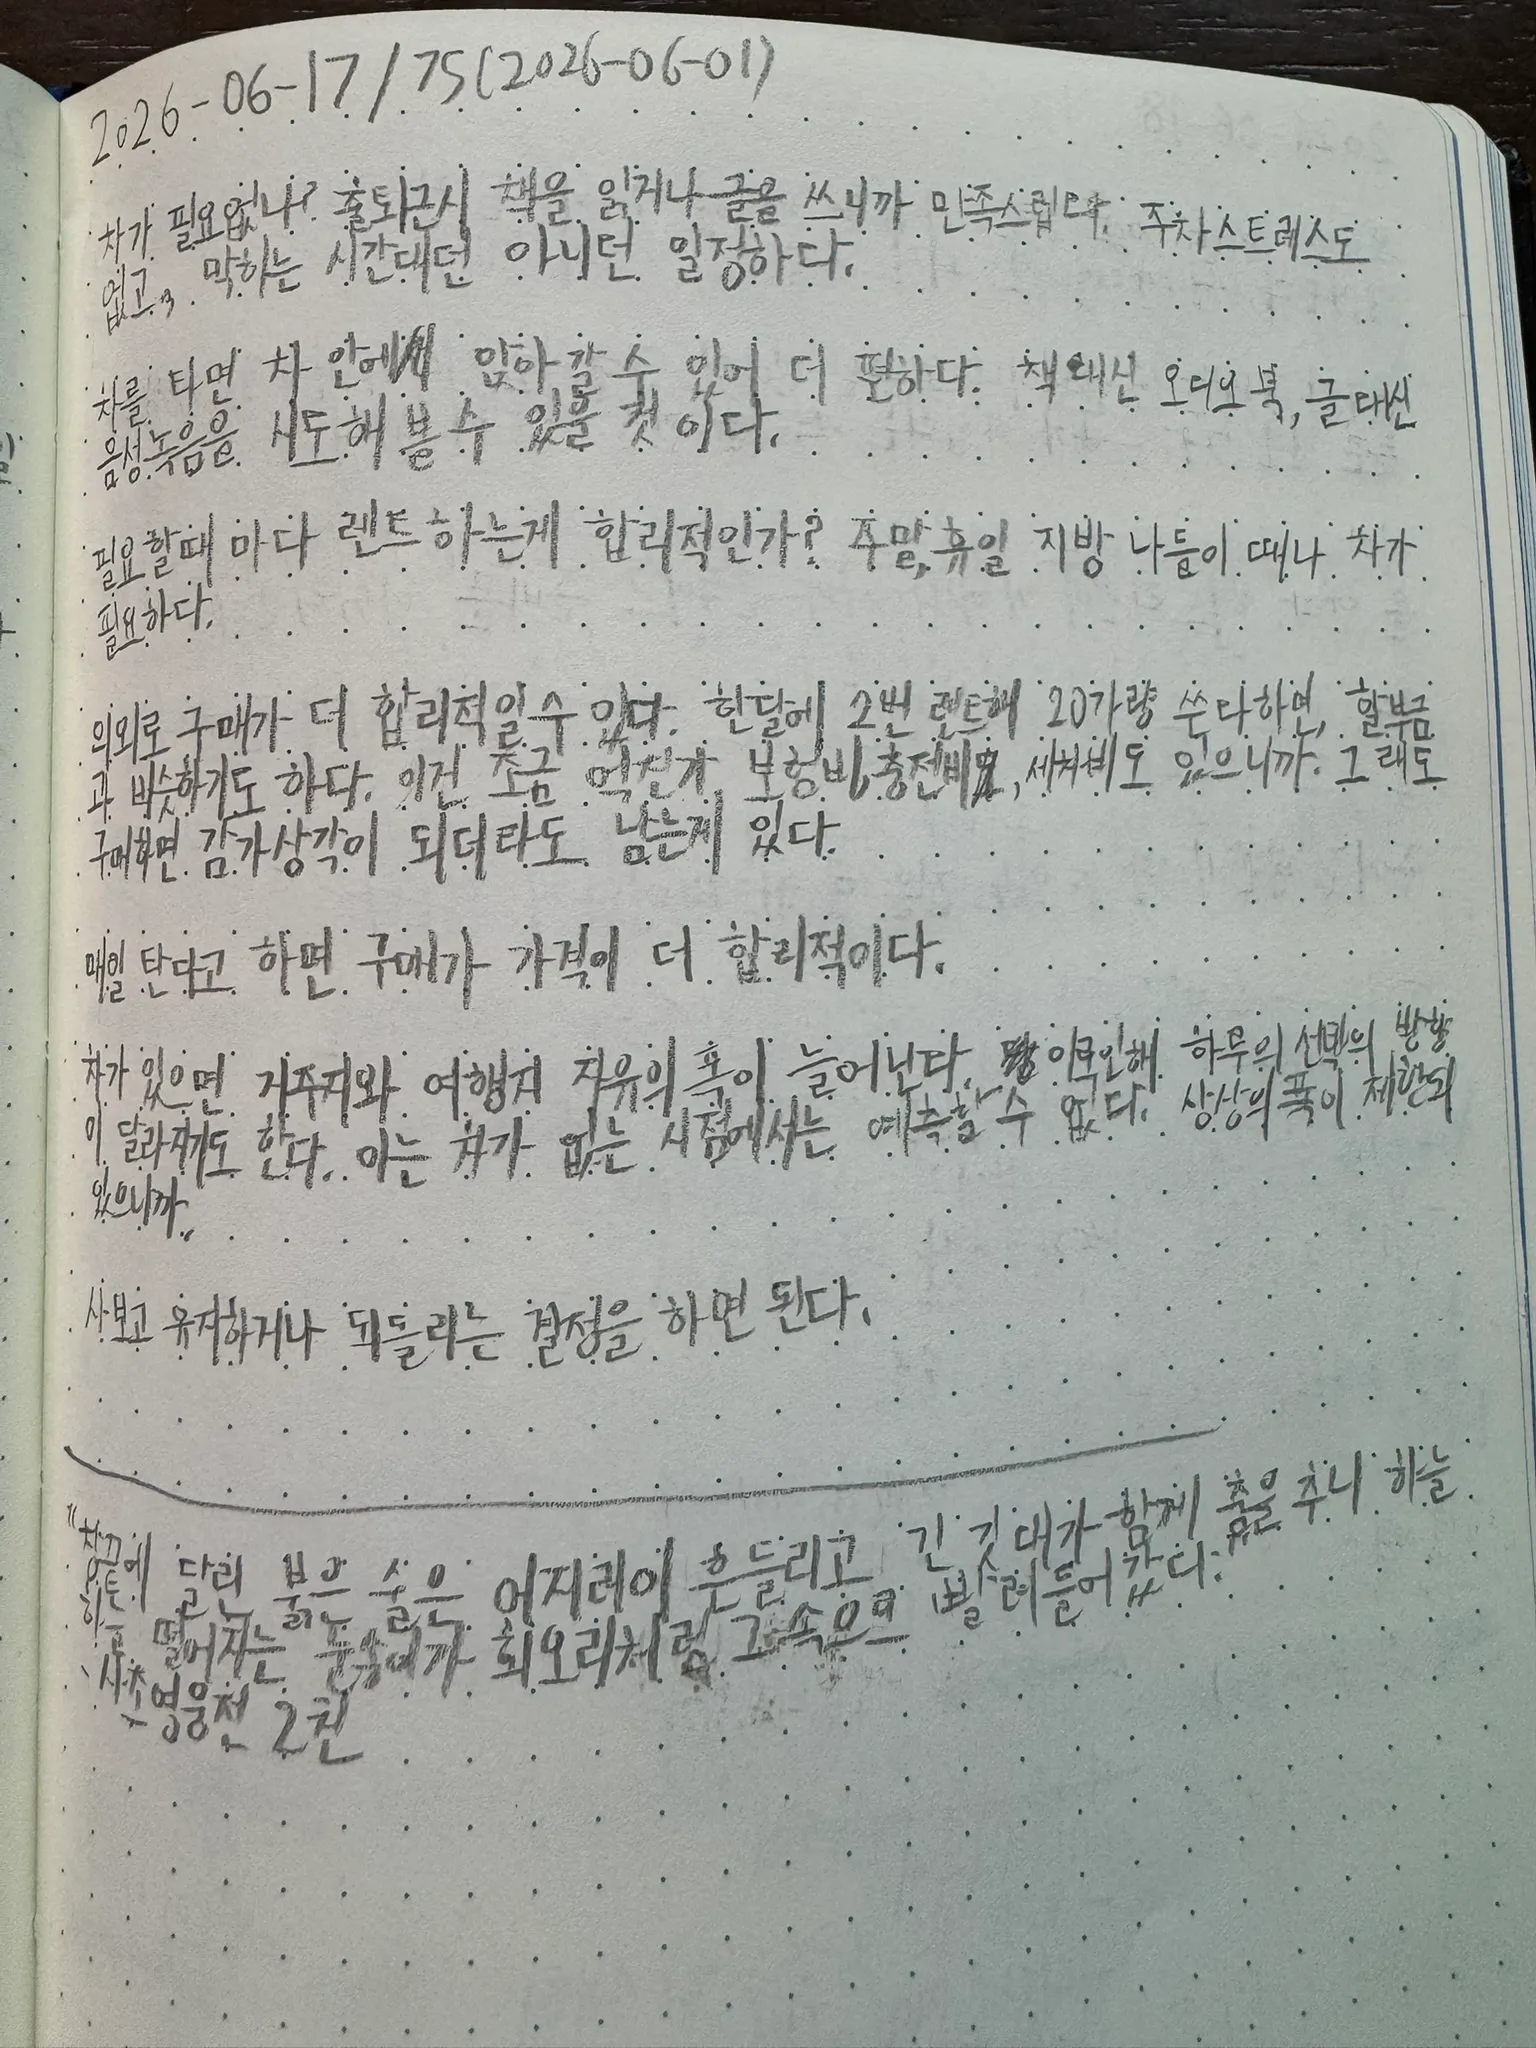 2026-06-17/75(2026-06-01)
차가 필요없나? 출퇴근시 책을 읽거나 글을 쓰니까 만족스럽다. 주차스트레스도
없고, 막히는 시간대던 아니던 일정하다.
차를 타면 차 안에서 앉아 갈 수 있어 더 편하다. 책 대신 오디오북, 글 대신
음성녹음을 시도해 볼 수 있을 것이다.
필요할때 마다 렌트하는게 합리적인가? 주말,휴일 지방 나들이 때나 차가
필요하다.
의외로 구매가 더 합리적일 수 있다. 한달에 2번 렌트해 20가량 쓴다하면, 할부금
과 비슷하기도 하다. 이건 조금 억진가 보험비,충전비, 세차비도 있으니까. 그래도
구매하면 감가상각이 되더라도 남는게 있다.
매일 탄다고 하면 구매가 가격이 더 합리적이다.
차가 있으면 거주지와 여행지 자유의 폭이 늘어난다. 이로인해 하루의 선택의 방향
이 달라지기도 한다. 이는 차가 없는 시점에서는 예측할 수 없다. 상상의 폭이 제한되
있으니까.
사보고 유지하거나 되돌리는 결정을 하면 된다.
"창끝에 달린 붉은 술은 어지러이 흔들리고 긴 깃대가 함께 춤을 추니 하늘
하늘 떨어지는 눈송이가 회오리처럼 그 속으로 빨려들어갔다."
사조영웅전 2권